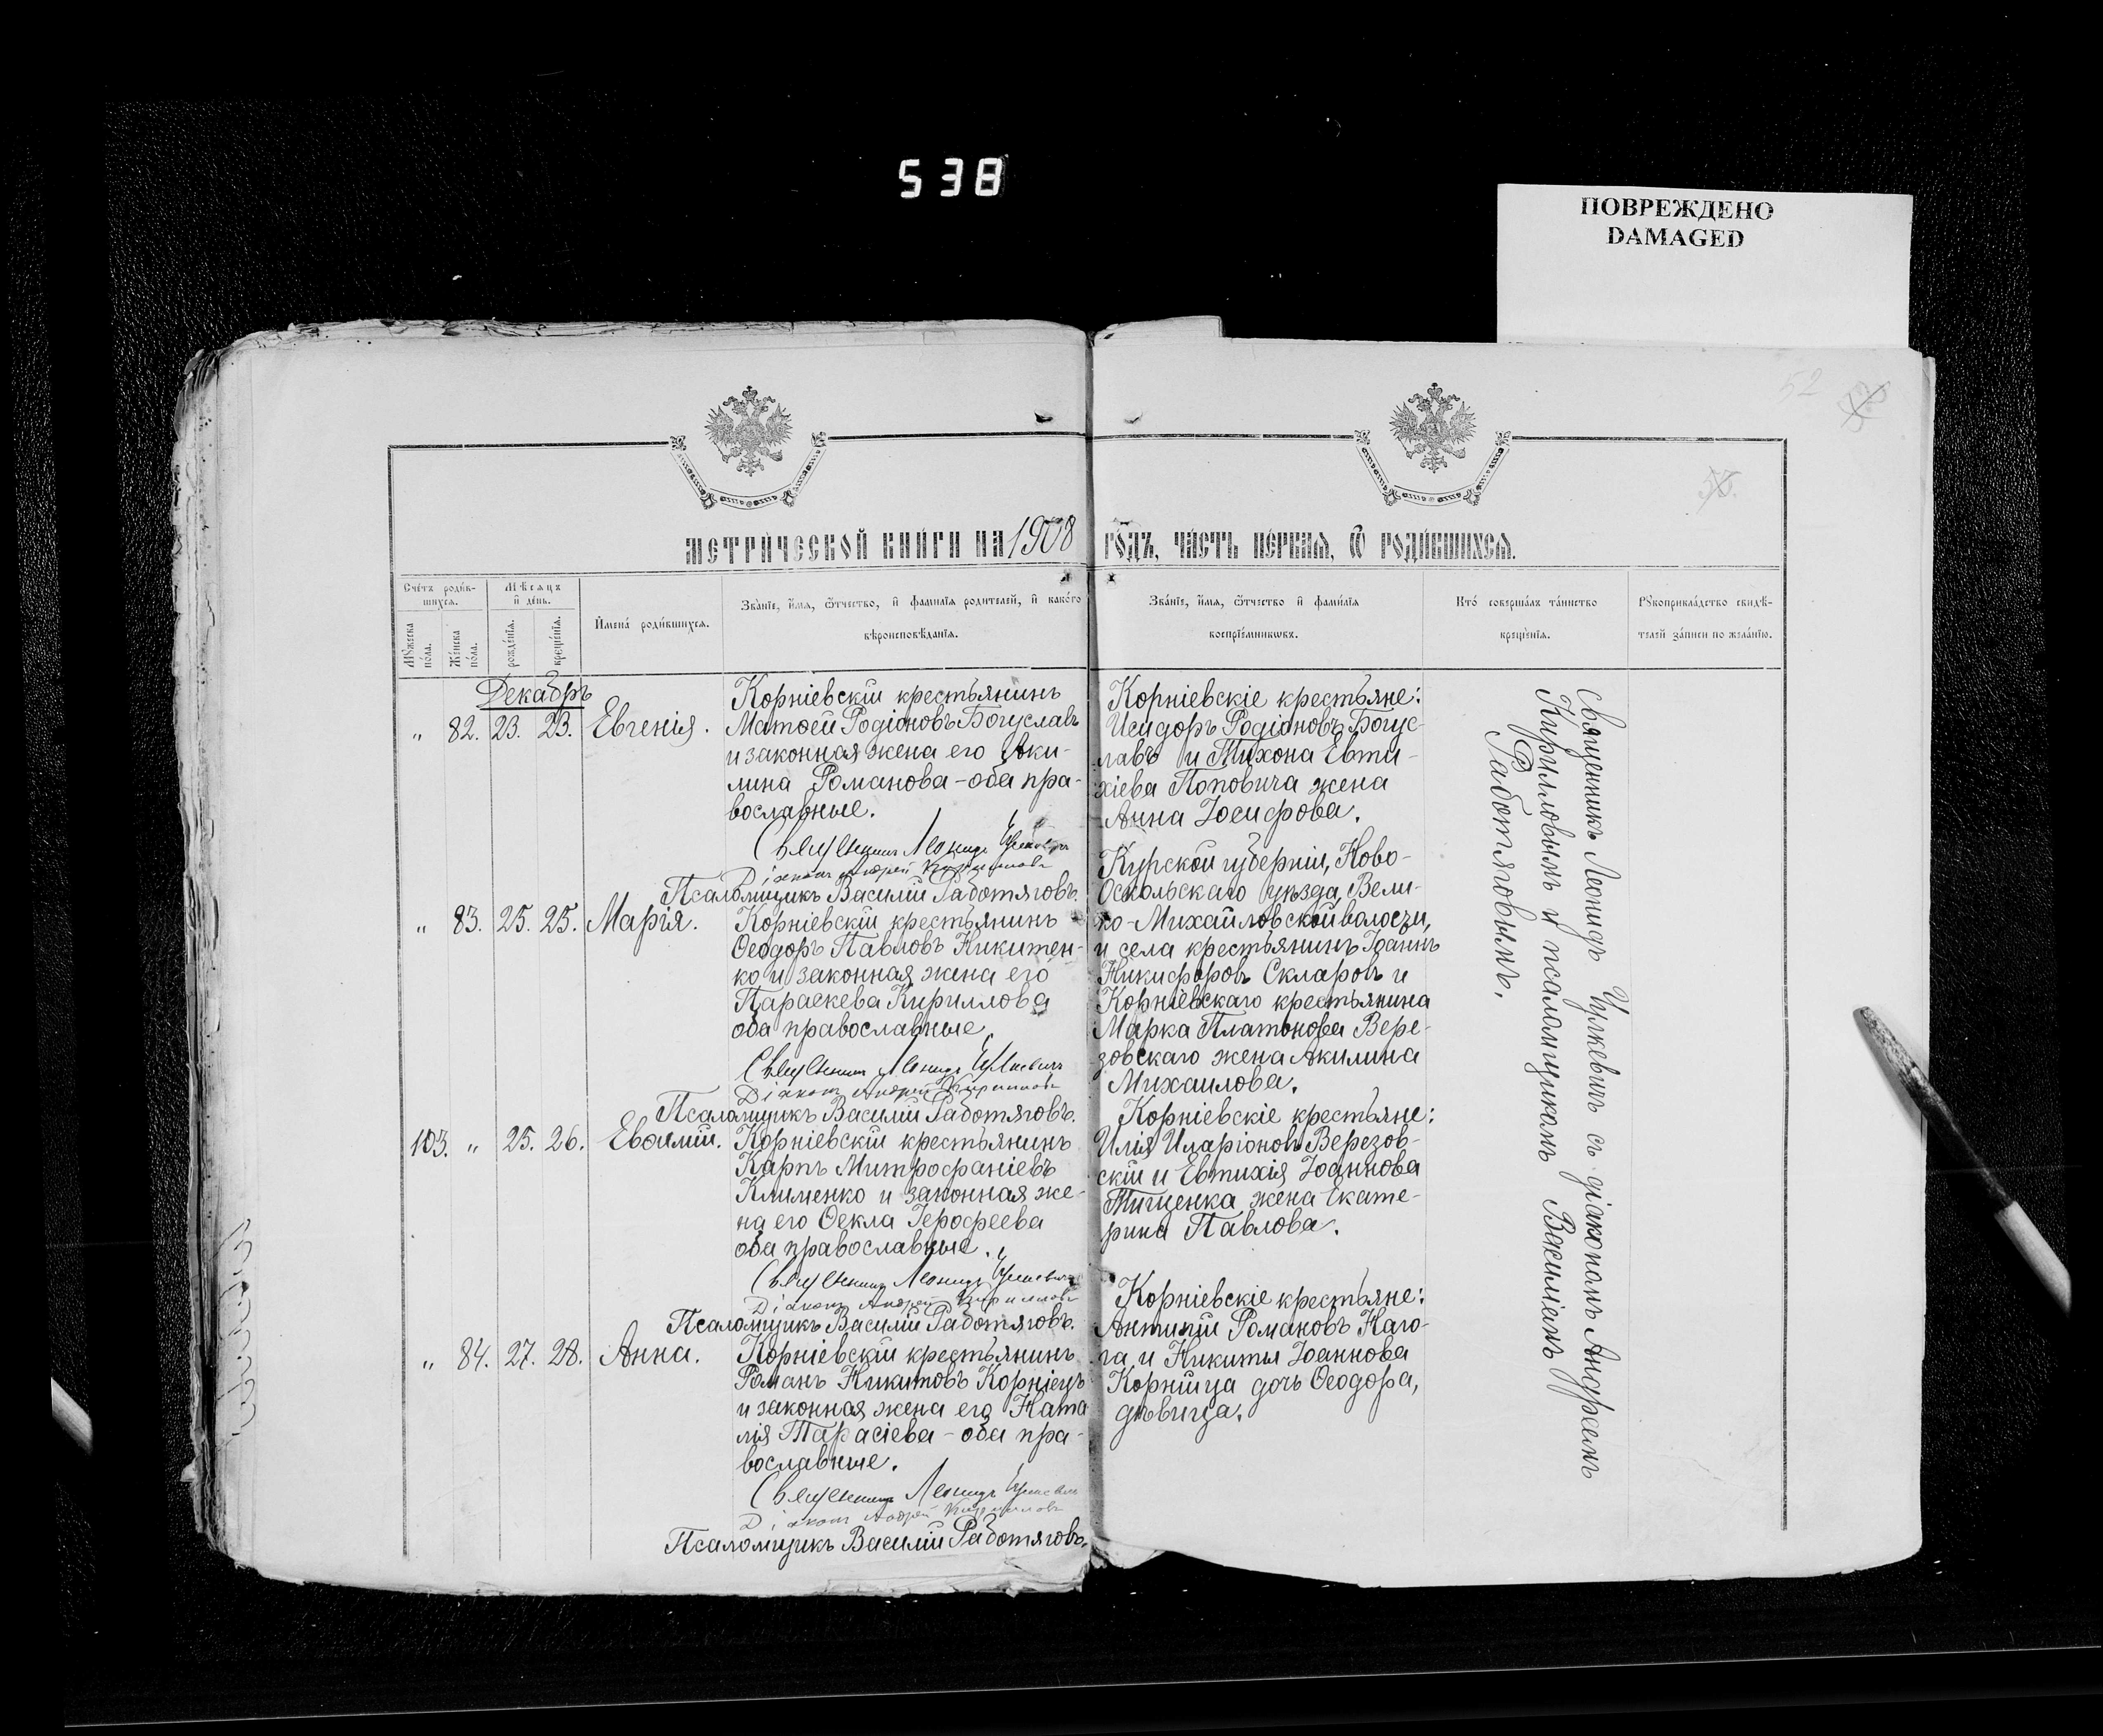 538
ПОВРЕЖДЕНО
DAMAGED
52
МЕТРИЧЕСКОЙ КНИГИ НА 1908 ГОДЪ, ЧАСТЬ ПЕРВАЯ, Ѿ РОДИВШИХСЯ.
Счетъ родив-
шихся.
Мѣсяцъ
и день.
Мꙋжеска
пола.
Женска
пола.
рожденія.
крещенія.
Имена родившихся.
Званіе, имя, ѿтчество, и фамилія родителей, и какого
вѣроисповѣданія.
Званіе, имя, ѿтчество и фамилія
воспріемниковъ.
Кто совершалъ таинство
крещенія.
Рꙋкоприкладство свидѣ-
телей записи по желанію.
Декабрь
„ 82. 23. 23. Евгенія.
Корніевскій крестьянинъ
Матѳей Родіоновъ Богуславъ
и законная жена его Аки-
лина Романова – оба пра-
вославные.
Священникъ Леонидъ Цулкевичъ
Діаконъ Андрей Кирилловъ
Псаломщикъ Василій Работяговъ.
Корніевскіе крестьяне:
Исидоръ Родіоновъ Богус-
лавъ и Тихона Евти-
хіева Поповича жена
Анна Іосифова.
„ 83. 25. 25. Марія.
Корніевскій крестьянинъ
Ѳеодоръ Павловъ Никитен-
ко и законная жена его
Параскева Кириллова
оба православные.
Священникъ Леонидъ Цулкевичъ
Діаконъ Андрей Кирилловъ
Псаломщикъ Василій Работяговъ.
Курской губерніи, Ново-
Оскольскаго уѣзда, Вели-
ко-Михайловской волости,
и села крестьянинъ Іоаннъ
Никифоровъ Скляровъ и
Корніевскаго крестьянина
Марка Платонова Бере-
зовскаго жена Акилина
Михайлова.
103. „ 25. 26. Евѳимій.
Корніевскій крестьянинъ
Карпъ Митрофаніевъ
Клименко и законная же-
на его Ѳекла Іерофеева
оба православные.
Священникъ Леонидъ Цулкевичъ
Діаконъ Андрей Кирилловъ
Псаломщикъ Василій Работяговъ.
Корніевскіе крестьяне:
Илія Иларіоновъ Березов-
скій и Евтихія Іоаннова
Тищенка жена Екате-
рина Павлова.
„ 84. 27. 28. Анна.
Корніевскій крестьянинъ
Романъ Никитовъ Корніецъ
и законная жена его Ната
лія Тарасіева – оба пра-
вославные.
Священникъ Леонидъ Цулкевичъ
Діаконъ Андрей Кирилловъ
Псаломщикъ Василій Работяговъ.
Корніевскіе крестьяне:
Антипій Романовъ Наго-
га и Никиты Іоаннова
Корнійца дочь Ѳеодора,
дѣвица.
Священникъ Леонидъ Цулкевичъ съ діакономъ Андреемъ
Кирилловымъ и псаломщикомъ Василіемъ
Работяговымъ.